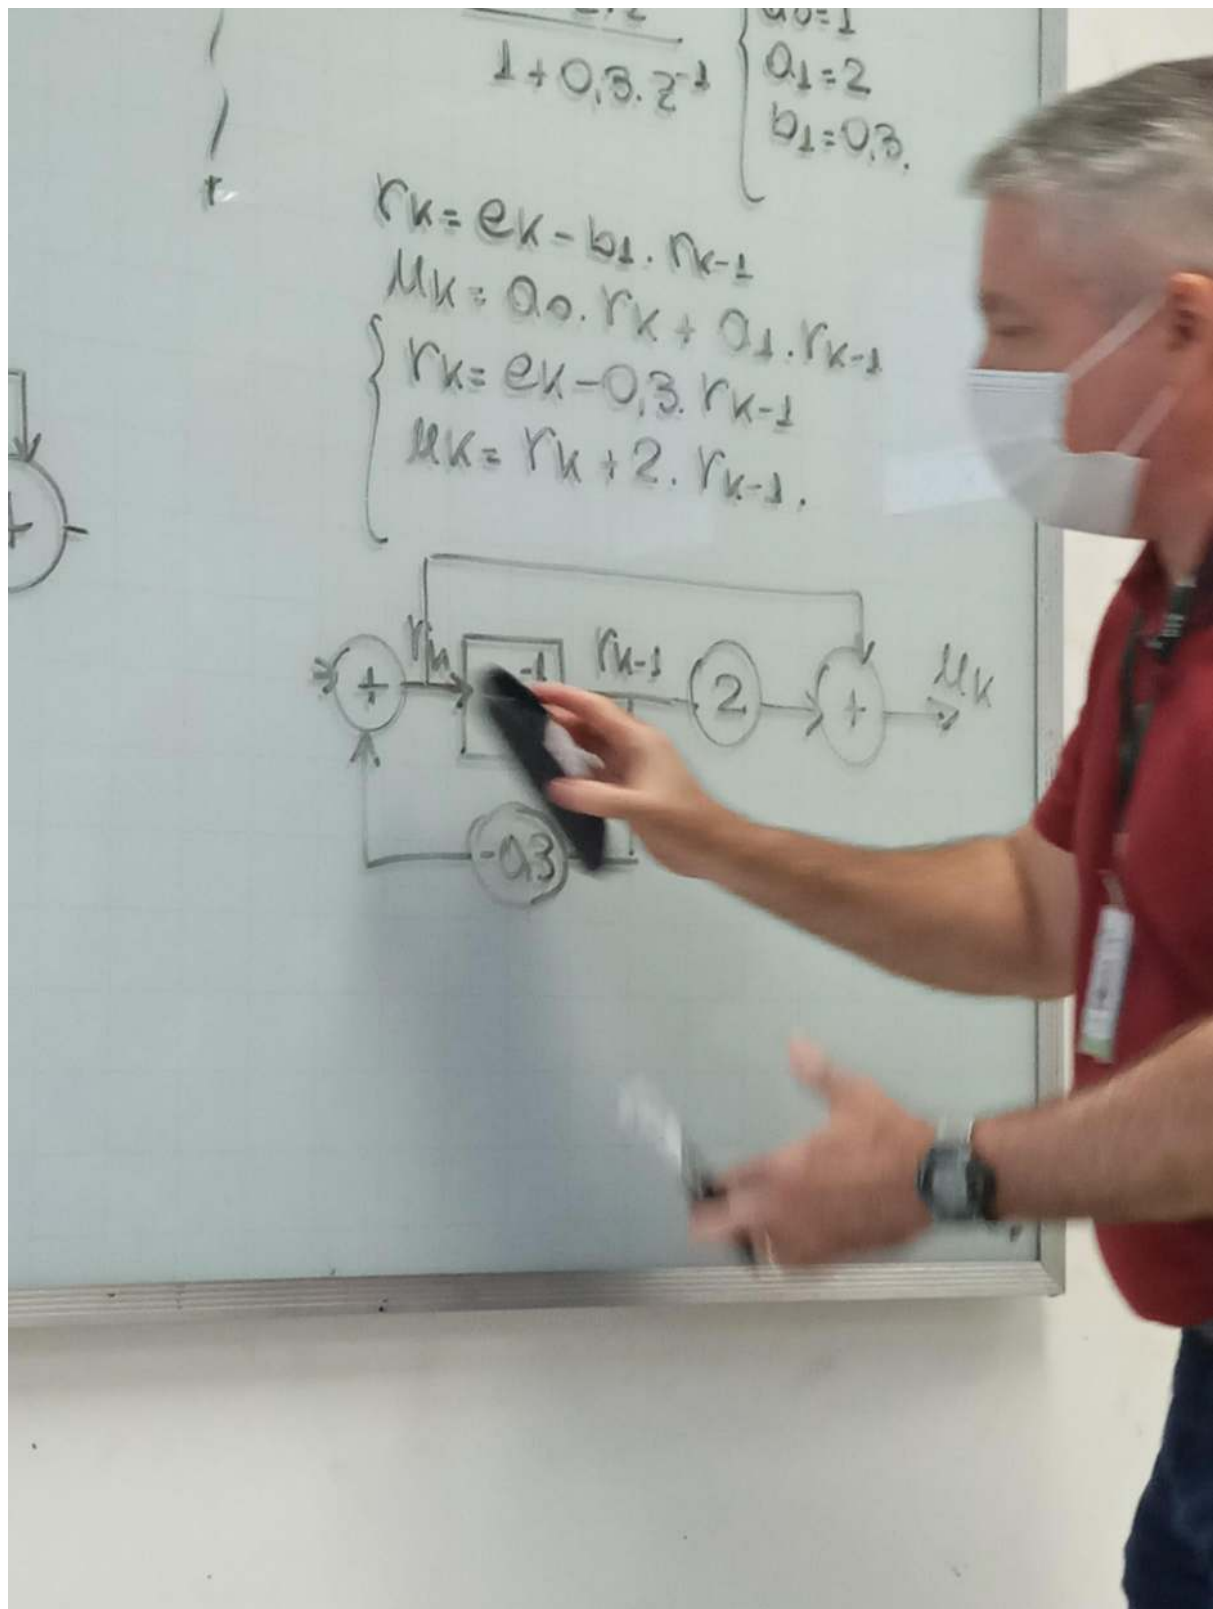 1+0,3.z⁻¹
a0=1
a1=2
b1=0,3.
rk=ek-b1.rk-1
μk=a0.rk+a1.rk-1
rk=ek-0,3.rk-1
μk=rk+2.rk-1.
+
+
rk
-1
rk-1
2
+
μk
-0,3